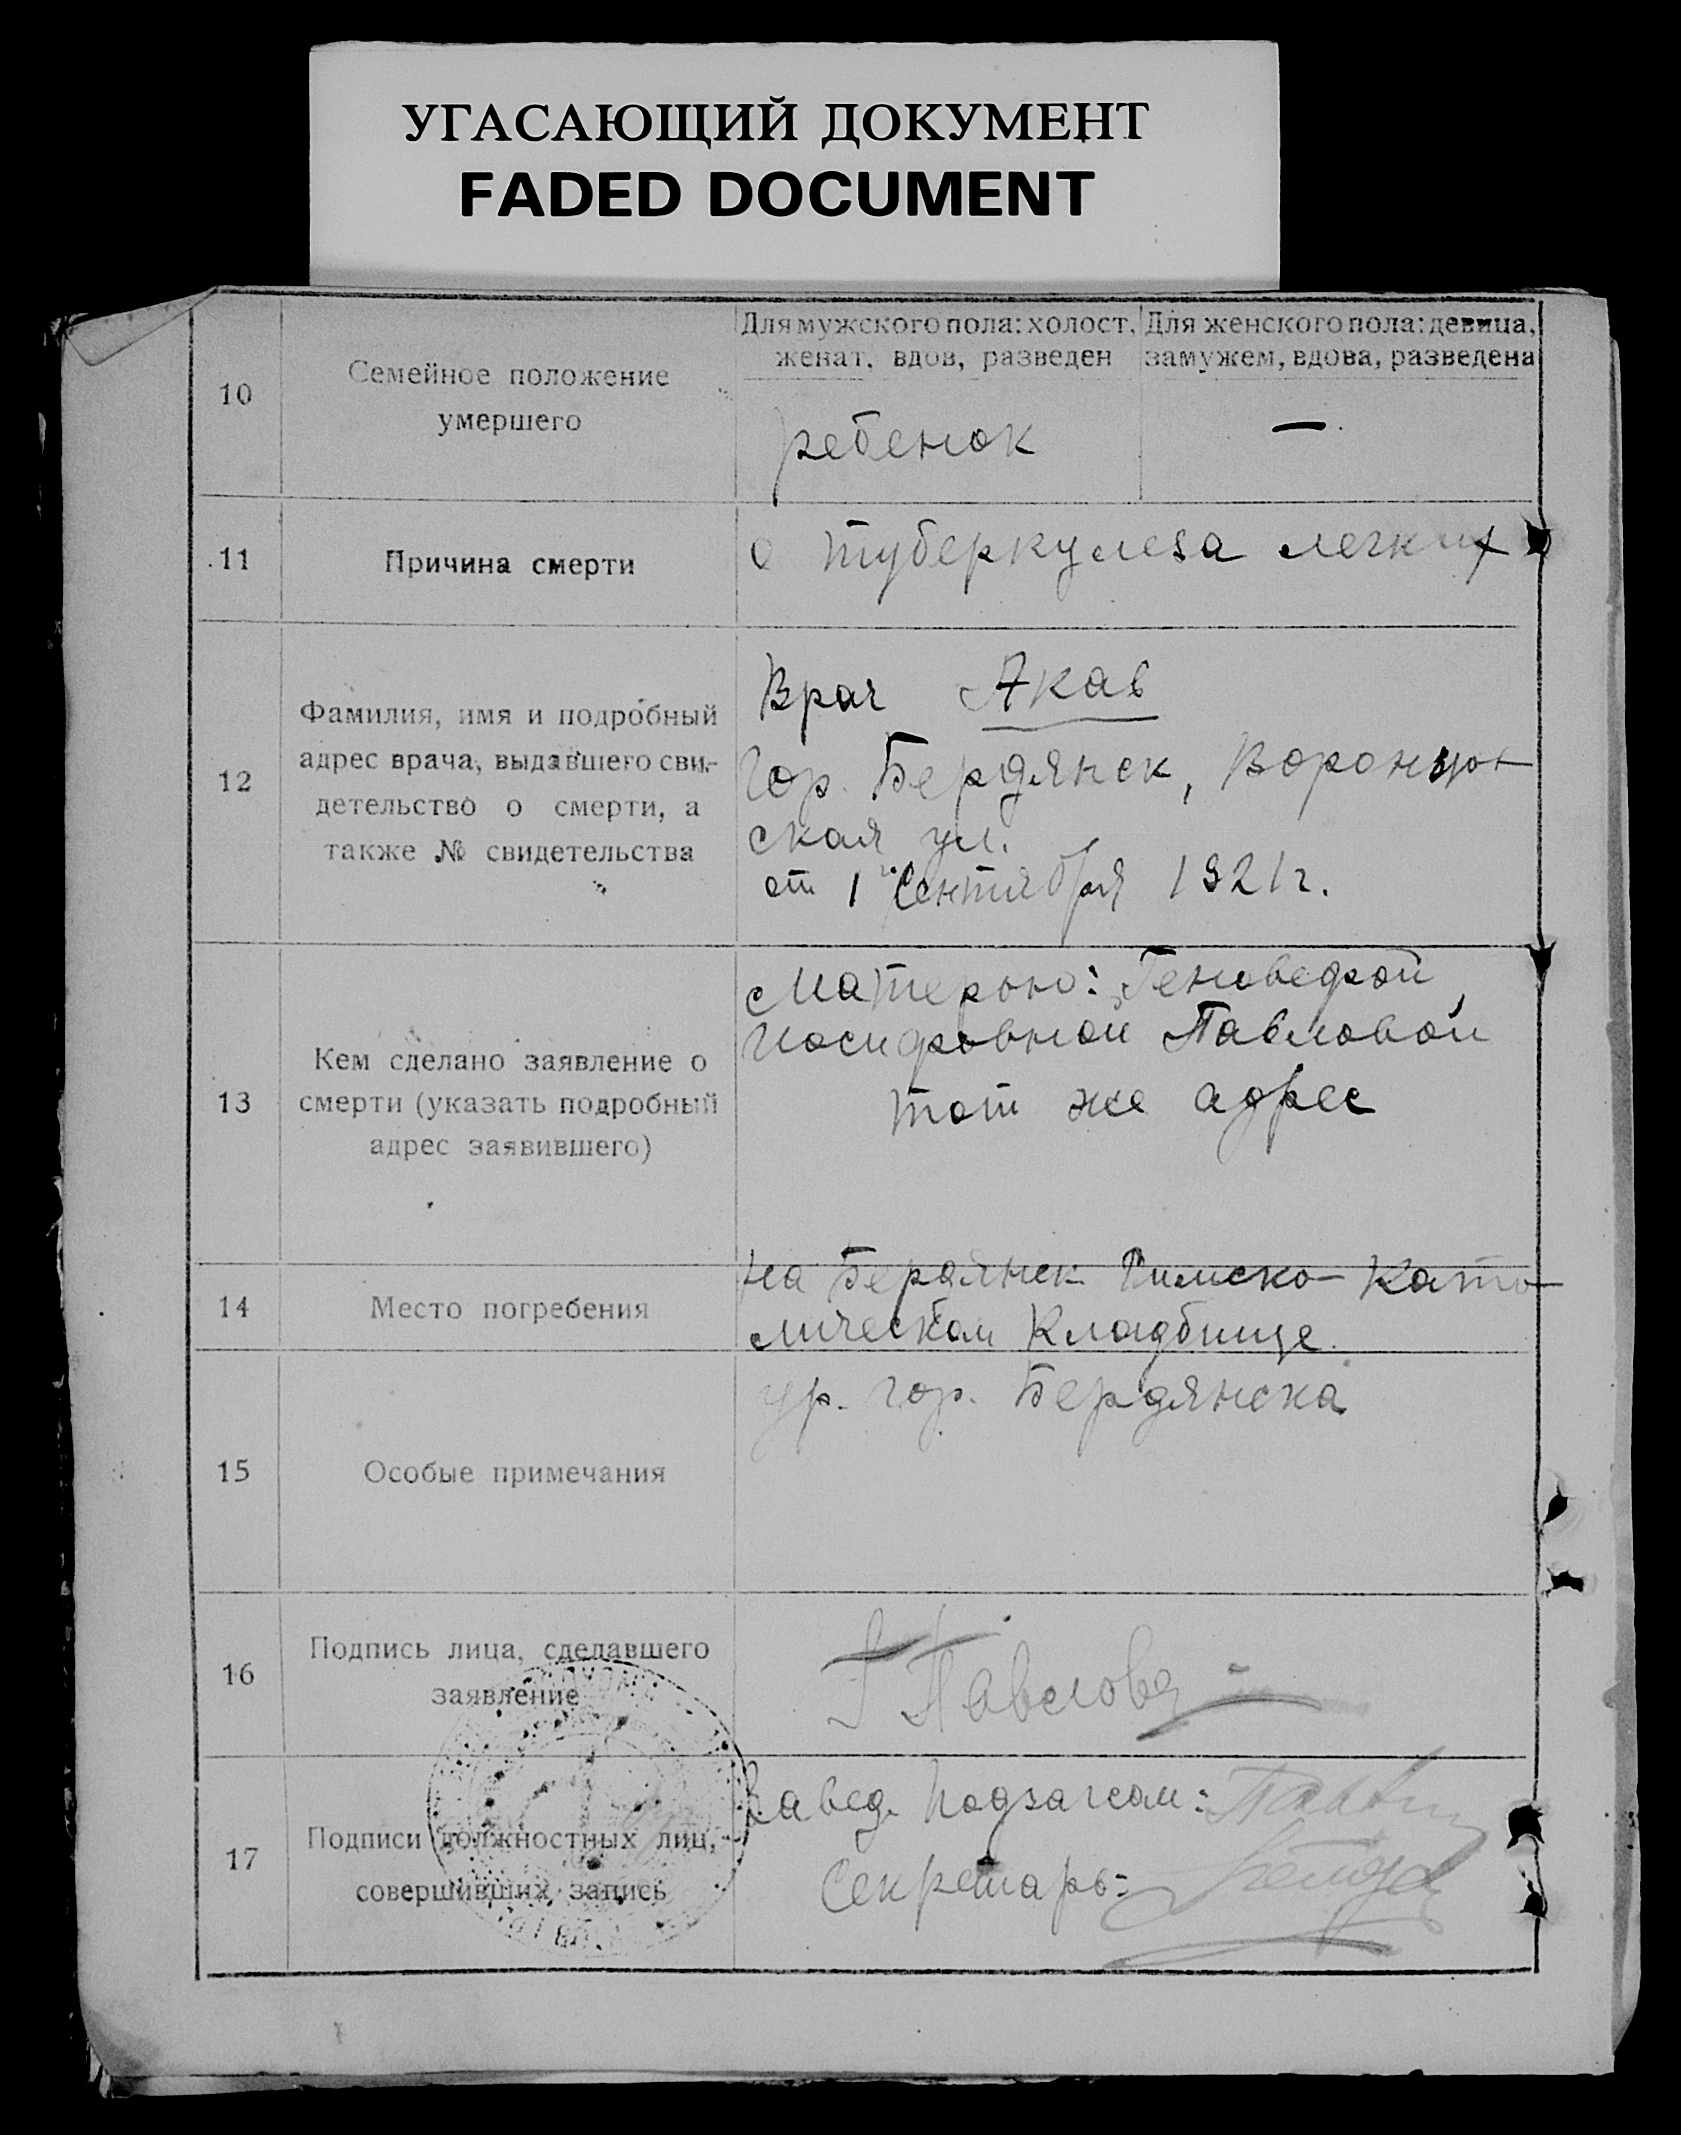 УГАСАЮЩИЙ ДОКУМЕНТ
FADED DOCUMENT
10
Семейное положение
умершего
Для мужского пола: холост,
женат, вдов, разведен
Для женского пола: девица,
замужем, вдова, разведена
ребенок
—
11
Причина смерти
о туберкулеза легких
12
Фамилия, имя и подробный
адрес врача, выдавшего сви-
детельство о смерти, а
также № свидетельства
Врач Акав
Гор. Бердянск, Воронцов
ская ул.
от 1 го Сентября 1921 г.
13
Кем сделано заявление о
смерти (указать подробный
адрес заявившего)
Матерью: Геноведрой
Иосифовной Павловой
тот же адрес
14
Место погребения
на Бердянск Римско-Като-
лическом Кладбище.
15
Особые примечания
гр. гор. Бердянска
16
Подпись лица, сделавшего
заявление
Г Павлова
17
Подписи должностных лиц,
совершивших запись
Завед. Подзагсом:
Секретарь: